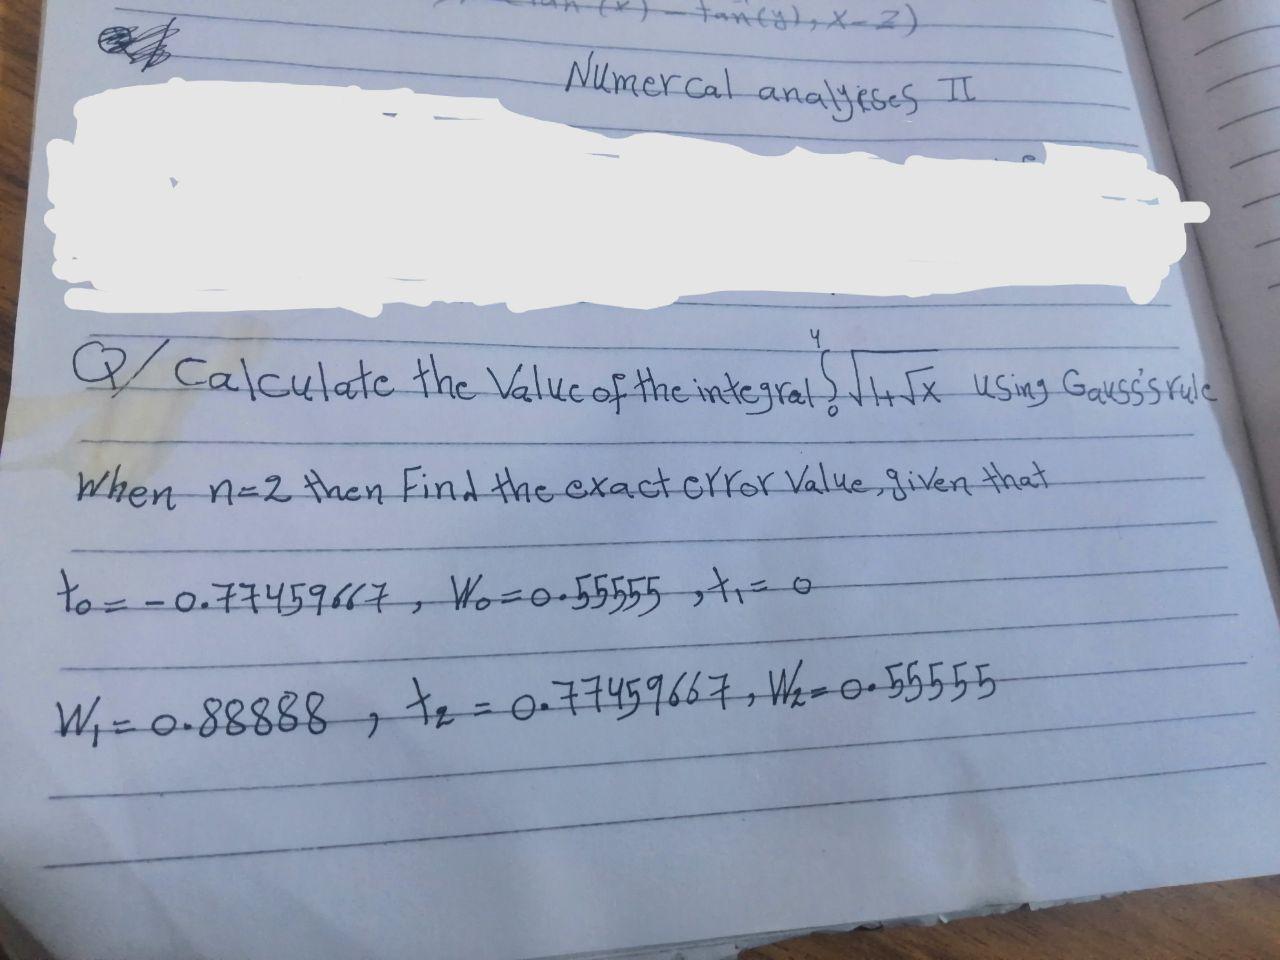 tan(x) - tan(y), x-z)
Numercal analyeses II
Q/ Calculate the Value of the integral ∫₀⁴ √1+√x using Gauss'srule
When n=2 then Find the exact error Value, given that
t₀ = -0.77459667, W₀=0.55555, t₁ = 0
W₁ = 0.88888, t₂ = 0.77459667, W₂= 0.55555